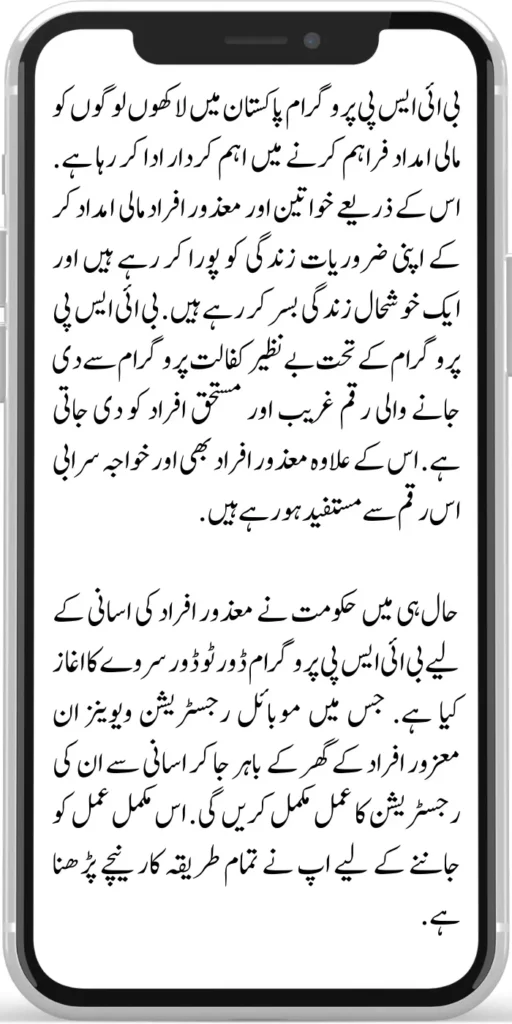 بی ائی ایس پی پروگرام پاکستان میں لاکھوں لوگوں کو
مالی امداد فراہم کرنے میں اہم کردار ادا کر رہا ہے.
اس کے ذریعے خواتین اور معذور افراد مالی امداد کر
کے اپنی ضروریات زندگی کو پورا کر رہے ہیں اور
ایک خوشحال زندگی بسر کر رہے ہیں. بی ائی ایس پی
پروگرام کے تحت بے نظیر کفالت پروگرام سے دی
جانے والی رقم غریب اور مستحق افراد کو دی جاتی
ہے. اس کے علاوہ معذور افراد بھی اور خواجہ سرابی
اس رقم سے مستفید ہو رہے ہیں.
حال ہی میں حکومت نے معذور افراد کی اسانی کے
لیے بی ائی ایس پی پروگرام ڈور ٹو ڈور سروے کا اغاز
کیا ہے. جس میں موبائل رجسٹریشن ویوینز ان
معزور افراد کے گھر کے باہر جا کر اسانی سے ان کی
رجسٹریشن کا عمل مکمل کریں گی. اس مکمل عمل کو
جاننے کے لیے اپ نے تمام طریقہ کار نیچے پڑھنا
ہے.